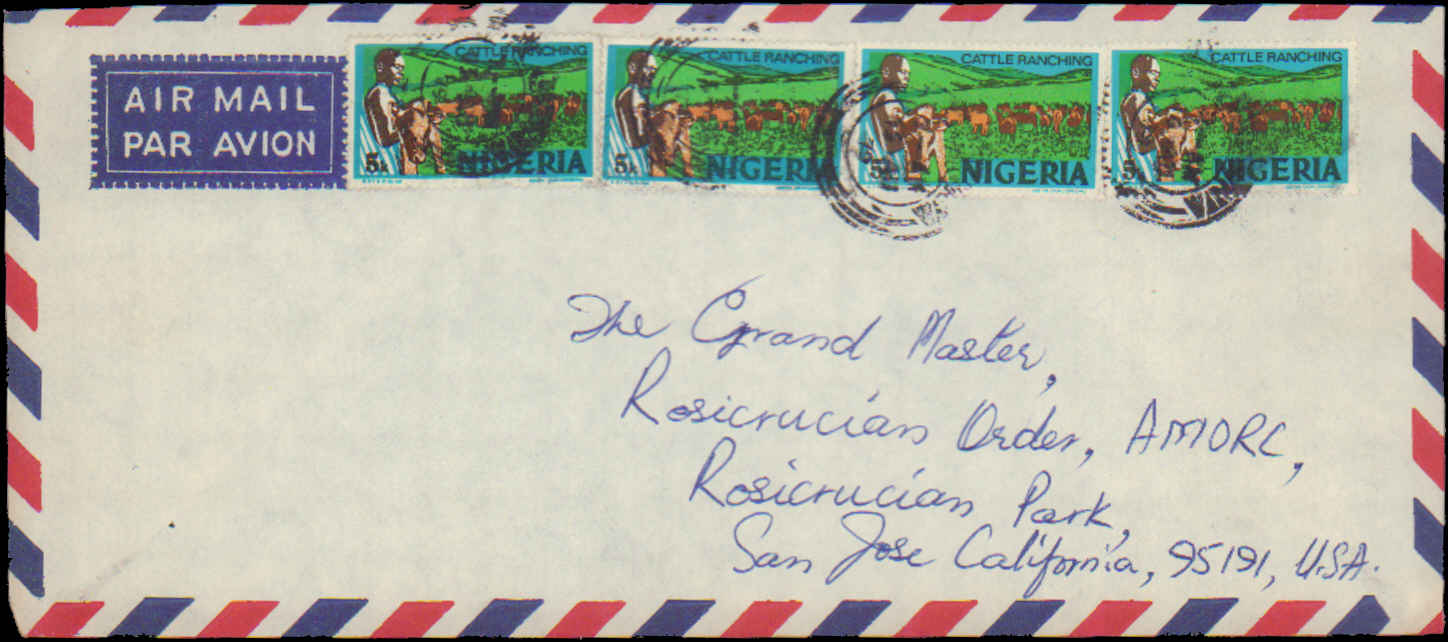 AIR MAIL
PAR AVION
CATTLE RANCHING
5k
NIGERIA
CATTLE RANCHING
5k
NIGERIA
CATTLE RANCHING
5k
NIGERIA
CATTLE RANCHING
5k
NIGERIA
The Grand Master,
Rosicrucian Order, AMORC,
Rosicrucian Park,
San Jose California, 95191, U.S.A.